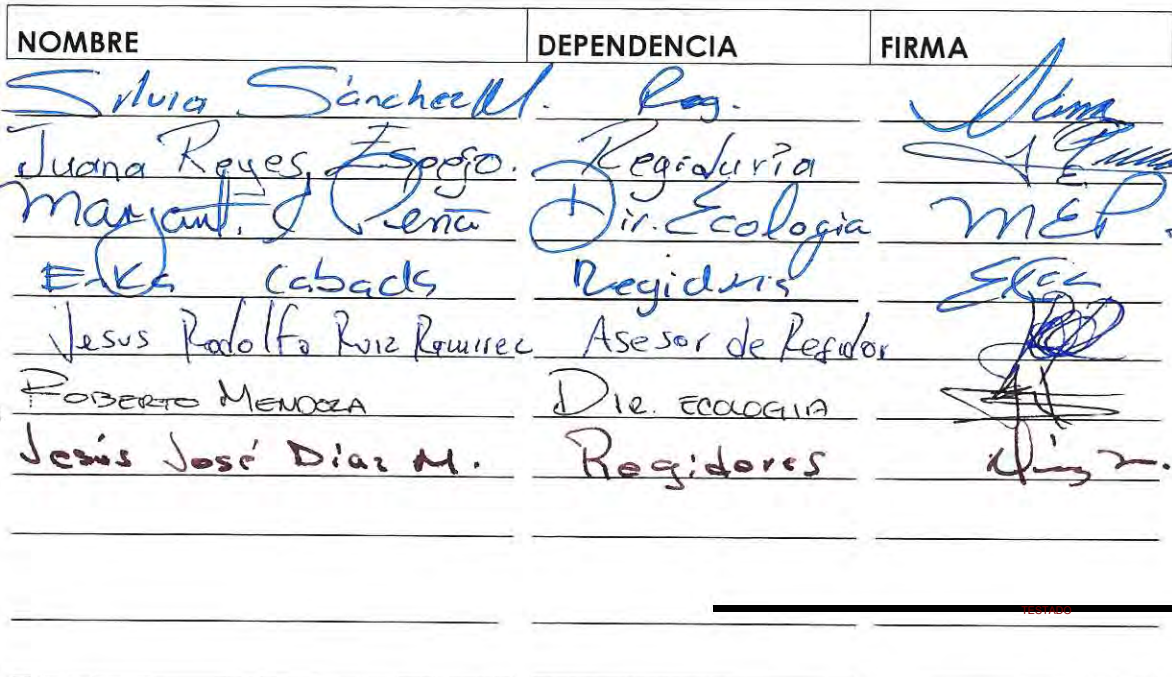 NOMBRE DEPENDENCIA FIRMA
Silvia Sánchez M. Reg.
Juana Reyes Espejo. Regiduría
Peña Dir. Ecologia MEP.
Erika Regiduria
Jesus Rodolfo Ruiz Ramirez Asesor de Regidor
ROBERTO MENDOZA DIR. ECOLOGIA
Jesús José Díaz M. Regidores
TESTADO